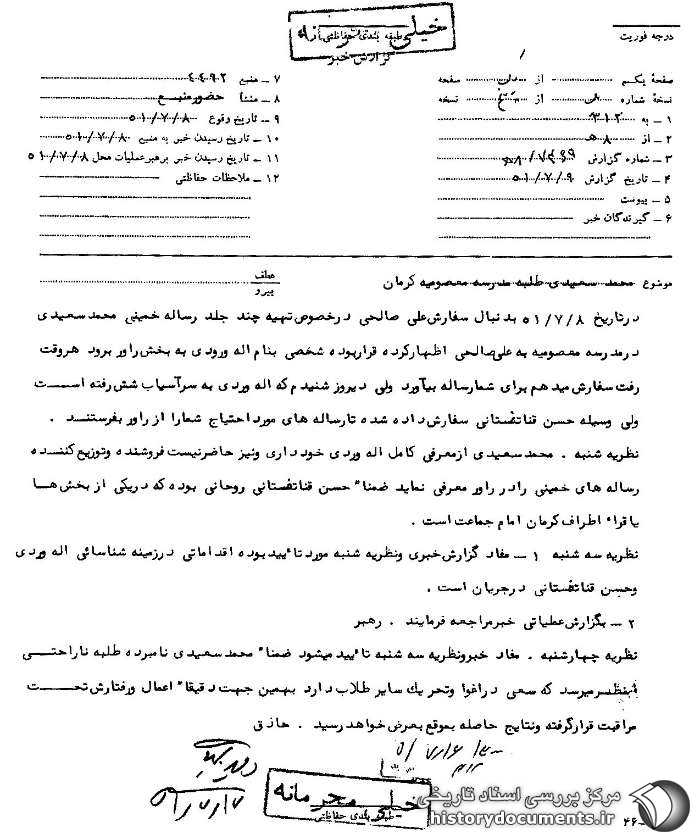 خیلی محرمانه
طبقه بندی حفاظتی
گزارش خبر
درجه فوریت
صفحهٔ یکم از صفحه
نسخهٔ شماره از نسخه
۱ ـ به ۳۱۲
۲ ـ از ۸ه
۳ ـ شماره گزارش
۴ ـ تاریخ گزارش ۵۱/۷/۹
۵ ـ پیوست
۶ ـ گیرندگان خبر
۷ ـ منبع ۴۴۹۲
۸ ـ منشأ حضور منبع
۹ ـ تاریخ وقوع ۵۱/۷/۸
۱۰ ـ تاریخ رسیدن خبر به منبع ۵۱/۷/۸
۱۱ ـ تاریخ رسیدن خبر برهبر عملیات محل ۵۱/۷/۸
۱۲ ـ ملاحظات حفاظتی
موضوع محمد سعیدی طلبه مدرسه معصومیه کرمان
عطف
پیرو
درتاریخ ۵۱/۷/۸ بدنبال سفارش علی صالحی درخصوص تهیه چند جلد رساله خمینی محمد سعیدی
درمدرسه معصومیه به علی صالحی اظهارکرده قراربوده شخصی بنام اله ورودی به بخش راور برود هروقت
رفت سفارش میدهم برای شمارساله بیآورد ولی دیروز شنیدم که اله وردی به سرآسیاب شش رفته است
ولی وسیله حسن قناتفستانی سفارش داده شده تارساله های مورد احتیاج شمارا از راور بفرستند .
نظریه شنبه . محمد سعیدی ازمعرفی کامل اله وردی خودداری ونیز حاضرنیست فروشنده وتوزیع کننده
رساله های خمینی رادر راور معرفی نماید ضمنا" حسن قناتفستانی روحانی بوده که دریکی از بخش ها
یاقراء اطراف کرمان امام جماعت است .
نظریه سه شنبه ۱ ـ مفاد گزارش خبری ونظریه شنبه مورد تائید بوده اقداماتی درزمینه شناسائی اله وردی
وحسن قناتفستانی درجریان است .
۲ ـ بگزارش عملیاتی خبرمراجعه فرمایند . رهبر
نظریه چهارشنبه . مفاد خبرونظریه سه شنبه تائید میشود ضمنا" محمد سعیدی نامبرده طلبه ناراحتی
بنظر میرسد که سعی دراغوا وتحریک سایر طلاب دارد بهمین جهت دقیقا" اعمال ورفتارش تحت
مراقبت قرارگرفته ونتایج حاصله بموقع بعرض خواهد رسید . حاذق
خیلی محرمانه
طبقه بندی حفاظتی
۴۶ـ
مرکز بررسی اسناد تاریخی
historydocuments.ir